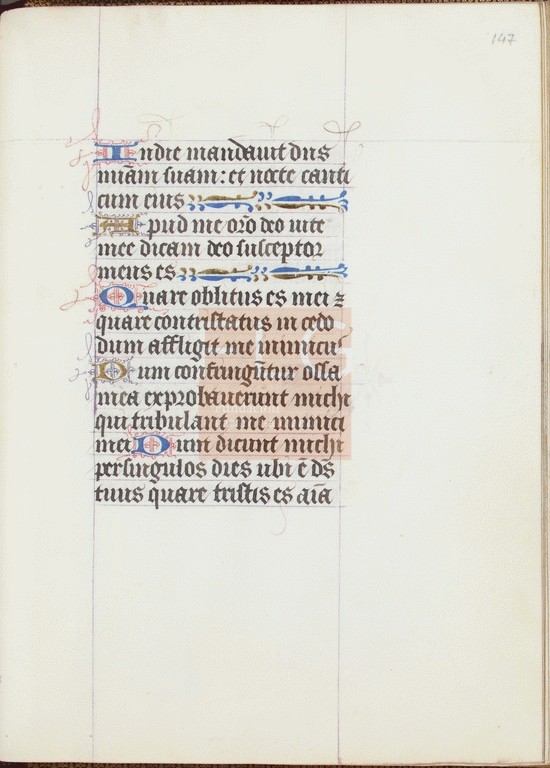 147
Indie mandavit dn̄s
miām suam: et nocte canti
cum eius
Apud me or̄o deo vite
mee dicam deo susceptor
meus es
Quare oblitus es mei ⁊
quare contristatus incedo
dum affligit me inimicus
Dum confringūtur ossa
mea exprobaverunt michi
qui tribulant me inimici
mei Dum dicunt michi
per singulos dies ubi ē ds̄
tuus quare tristis es aīa